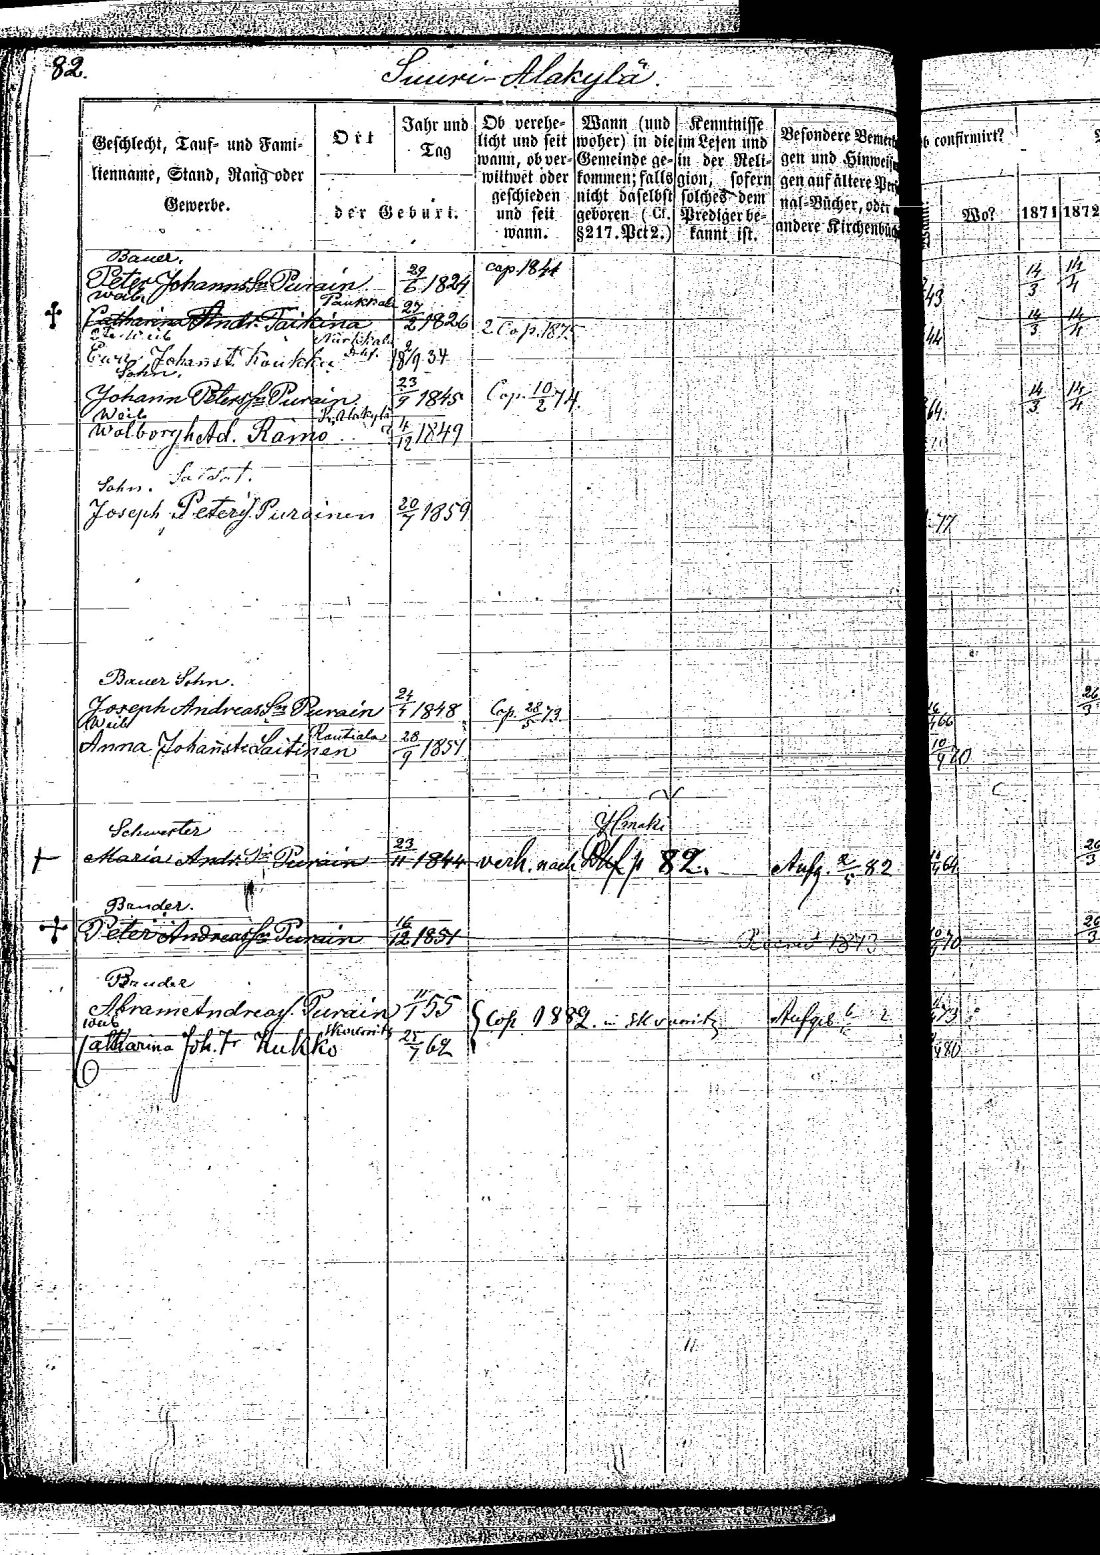 82.
Suuri-Alakylä.
Geschlecht, Tauf- und Fami-
lienname, Stand, Rang oder
Gewerbe.
Ort
der Geburt.
Jahr und
Tag
Ob verehe-
licht und seit
wann, ob ver-
witwet oder
geschieden
und seit
wann.
Wann (und
woher) in die
Gemeinde ge-
kommen; falls
nicht daselbst
geboren (Cf.
§217. Pct2.)
Kenntnisse
im Lesen und
in der Reli-
gion, sofern
solches dem
Prediger be-
kannt ist.
Besondere Bemer
gen und Hinweisu
gen auf ältere Per
nal-Bücher, oder
andere Kirchenbüch
ob confirmirt?
Wo?
1871
1872
Bauer.
Peter Johanns Sn Purain 29/6 1824 cop. 1844 43 14/3 14/4
Weib
Catharina Andr. Taikina 27/2 1826 2 Cop. 1875 44 14/3 14/4
Johanst. Koukku 34
Sohn.
Johann Peters Sn Purain 23/9 1845 Cop. 10/2 74. 64. 14/3 14/4
Weib
Walborg Ad. Rämö 4/12 1849
Sohn. Soldat.
Joseph Peters Puroinen 20/7 1859 77
Bauer Sohn.
Joseph Andreas Sn Purain 24/4 1848 Cop. 28/5 73. 66 26/3
Weib Rautiala
Anna Johanst. Laitinen 28/9 1851 10/4 70
Schwester
Maria Andr. Purain 23/11 1844 verh. nach p 82. Aufg. 2/5 82 64 26/3
Bruder.
Peter Andreas Sn Purain 16/12 1851 1873 70 26/3
Bruder
Abram Andreas Purain 11/1 55 Cop 1882. in Skworitz Aufgeb. 73
Weib Skworitz
Catharina Joh. Tr Kukko 25/7 62 80